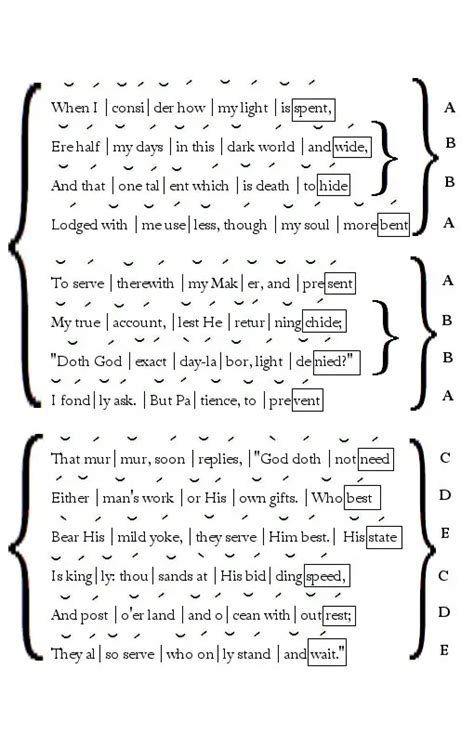 When I | consi | der how | my light | is spent, A
Ere half | my days | in this | dark world | and wide, B
And that | one tal | ent which | is death | to hide B
Lodged with | me use | less, though | my soul | more bent A
To serve | therewith | my Mak | er, and | pre sent A
My true | account, | lest He | retur | ning chide; B
"Doth God | exact | day-la | bor, light | de nied?" B
I fond | ly ask. | But Pa | tience, to | pre vent A
That mur | mur, soon | replies, | "God doth | not need C
Either | man's work | or His | own gifts. | Who best D
Bear His | mild yoke, | they serve | Him best. | His state E
Is king | ly: thou | sands at | His bid | ding speed, C
And post | o'er land | and o | cean with | out rest; D
They al | so serve | who on | ly stand | and wait." E